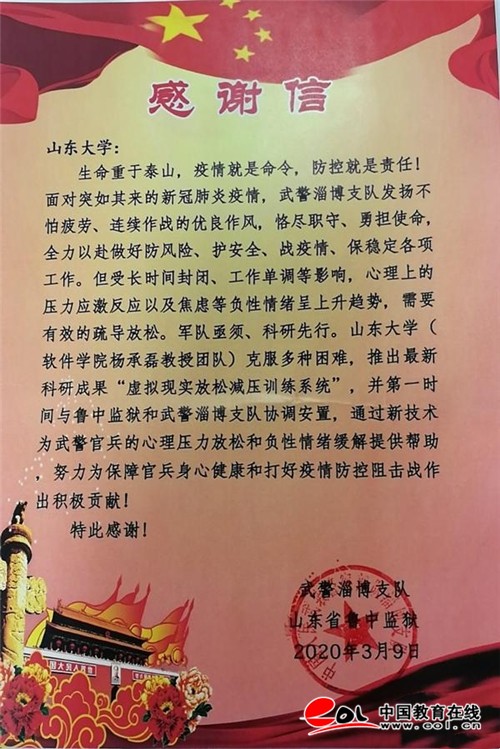 感谢信
山东大学：
生命重于泰山，疫情就是命令，防控就是责任！
面对突如其来的新冠肺炎疫情，武警淄博支队发扬不
怕疲劳、连续作战的优良作风，恪尽职守、勇担使命，
全力以赴做好防风险、护安全、战疫情、保稳定各项
工作。但受长时间封闭、工作单调等影响，心理上的
压力应激反应以及焦虑等负性情绪呈上升趋势，需要
有效的疏导放松。军队亟须、科研先行。山东大学（
软件学院杨承磊教授团队）克服多种困难，推出最新
科研成果“虚拟现实放松减压训练系统”，并第一时
间与鲁中监狱和武警淄博支队协调安置，通过新技术
为武警官兵的心理压力放松和负性情绪缓解提供帮助
，努力为保障官兵身心健康和打好疫情防控阻击战作
出积极贡献！
特此感谢！
武警淄博支队
山东省鲁中监狱
2020年3月9日
eol 中国教育在线
www.eol.cn